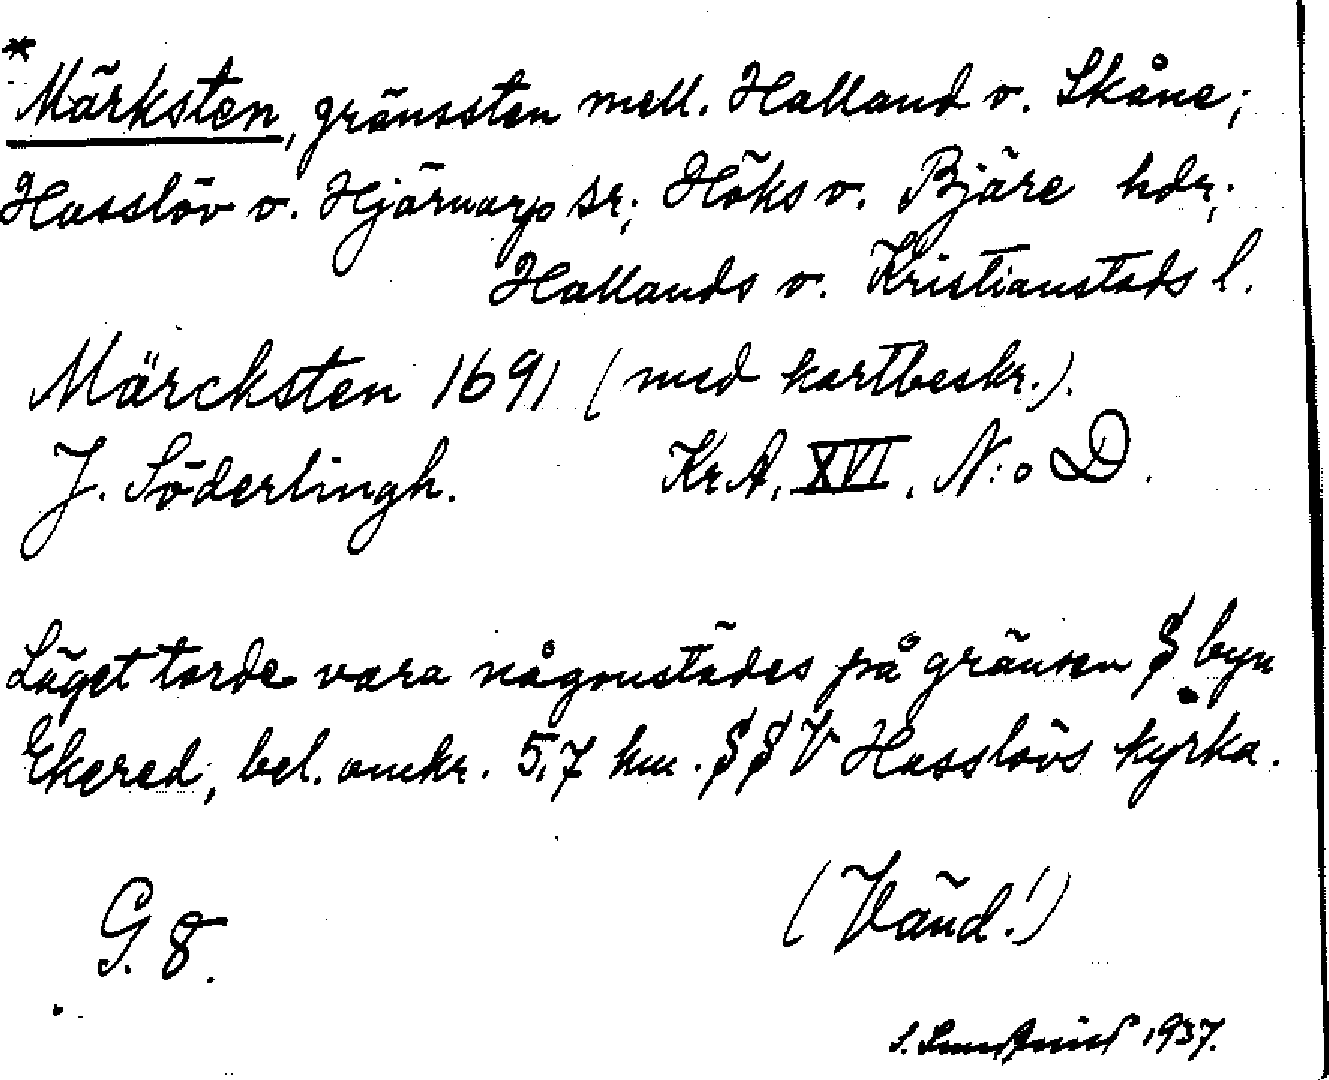 * Märksten, gränssten mell. Halland o. Skåne;
Hasslöv o. Hjärnarp sr; Höks o. Bjäre hdr;
Hallands o. Kristianstads l.
Märcksten 1691 (med kartbeskr.).
J. Söderlingh. KrA, XVI, N:o D.
Läget torde vara någonstädes på gränsen S byn
Ekered, bel. omkr. 5,7 km. SSV Hasslövs kyrka.
G. 8. (Vänd!)
1937.